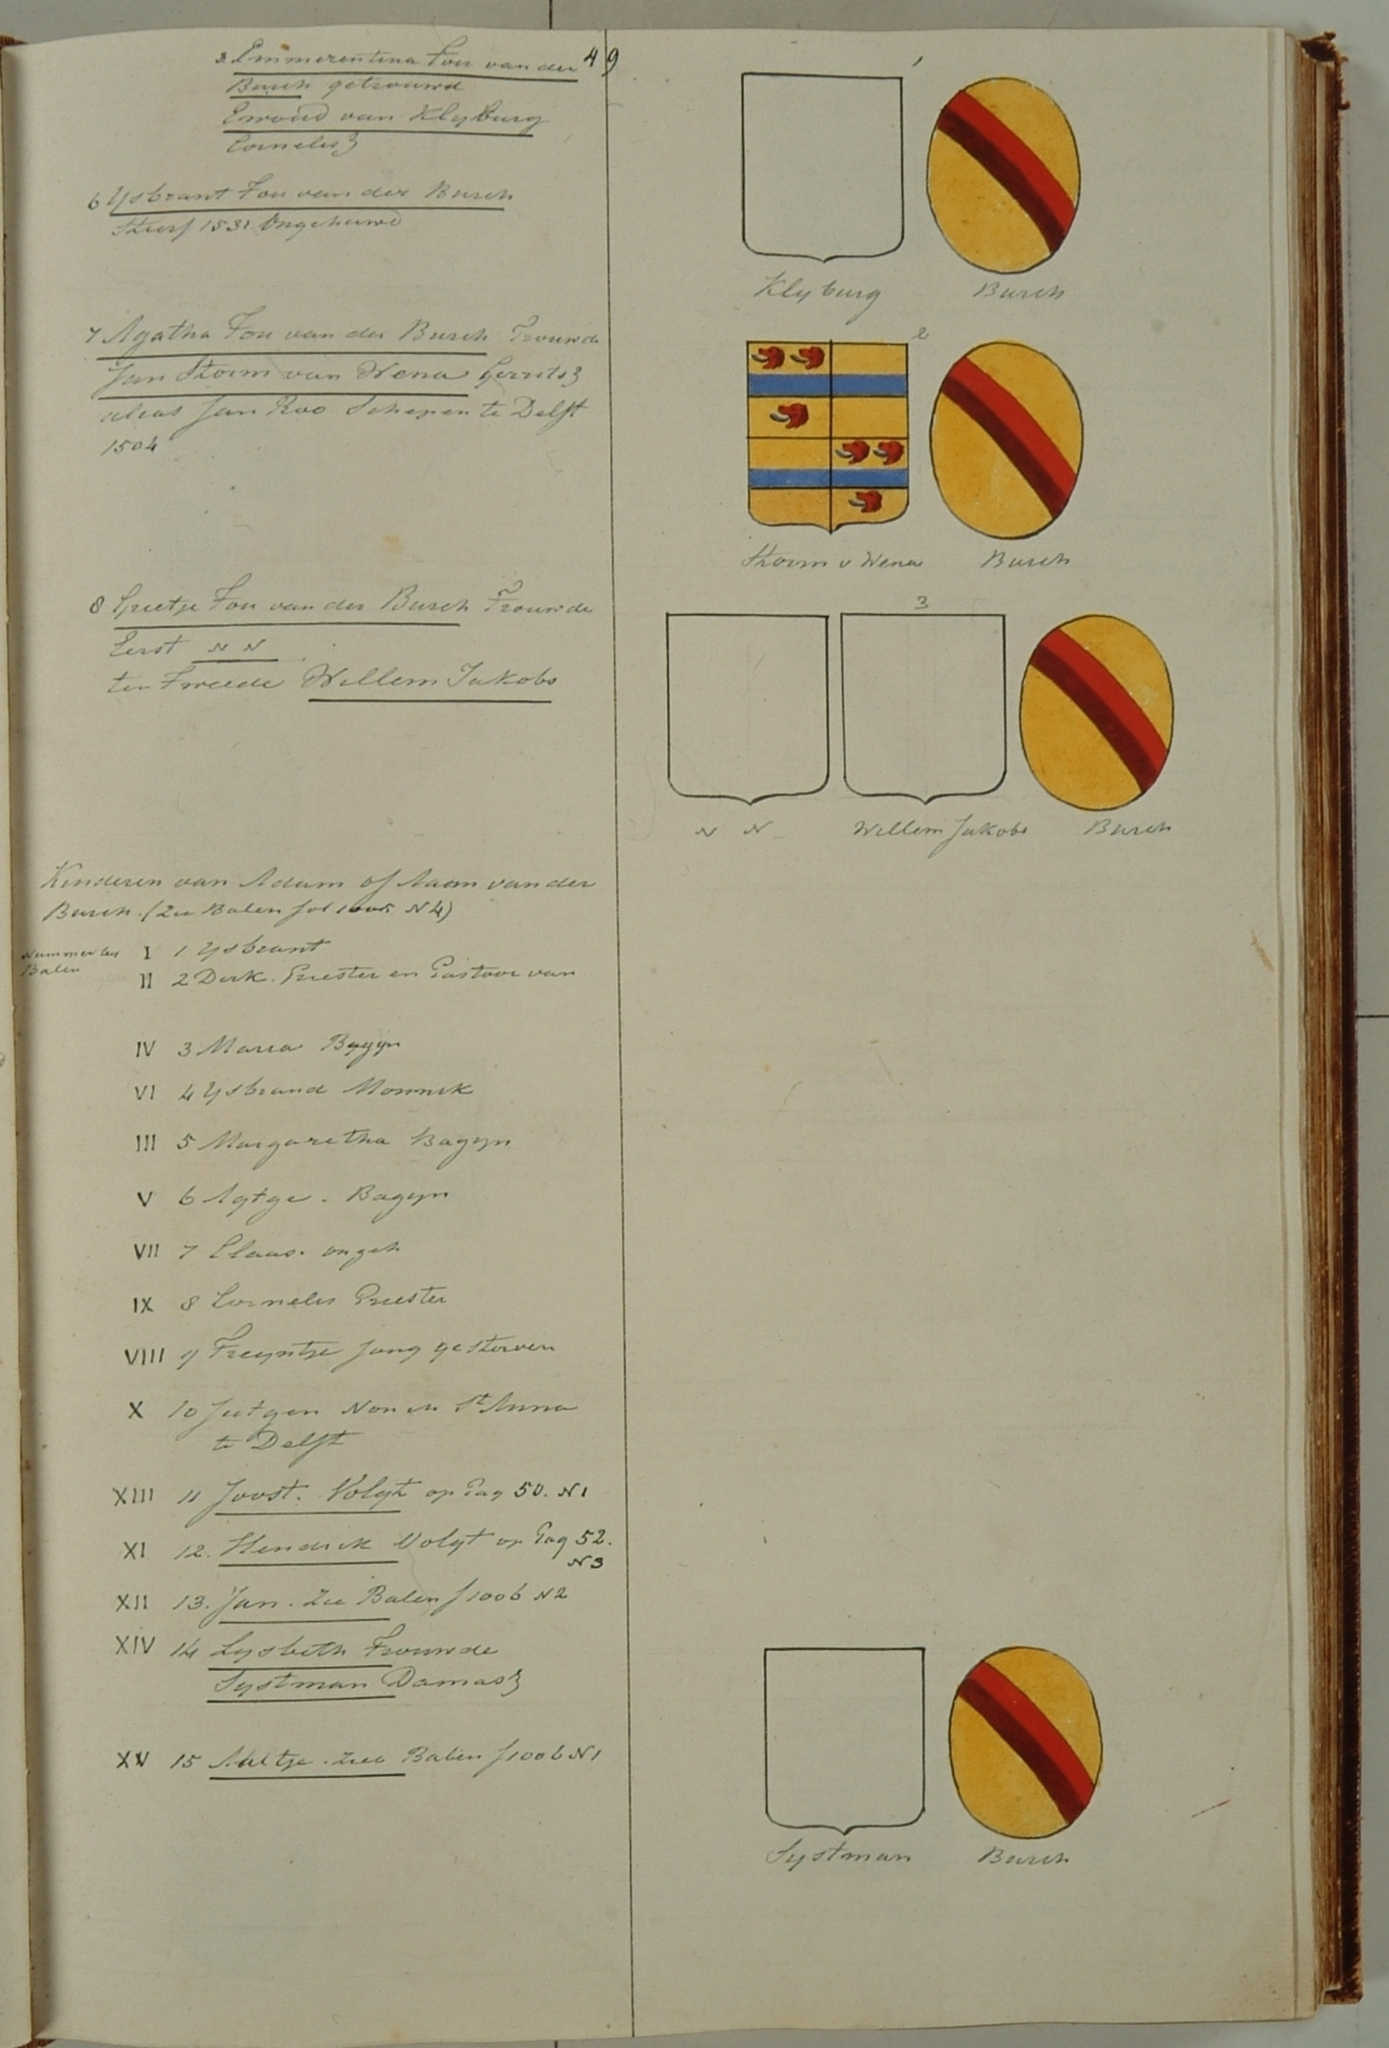 49
3 Emmerentina Fou van der
Burch getrouwd
Ewoud van Klyburg
Cornelisz
6 Ysbrant Fou van der Burch
Sterf 1531 Ongehuwd
7 Agatha Fou van der Burch Trouwde
Jan Storm van Wena Gerritsz
alias Jan Roo Schepen te Delft
1504
8 Grietje Fou van der Burch Trouwde
Eerst N N
ten Tweede Willem Jakobs
Kinderen van Adam of Aaom van der
Burch. (Zie Balen fol 1005 N4)
Nummer bij
Balen
I 1 Ysbrant
II 2 Dirk. Priester en Pastoor van
IV 3 Maria Bagyn
VI 4 Ysbrand Monnik
III 5 Margaretha Bagyn
V 6 Agtge. Bagyn
VII 7 Claas. ongeh
IX 8 Cornelis Priester
VIII 9 Treyntje Jong gestorven
X 10 Jutgen Non in St Anna
te Delft
XIII 11 Joost. Volgt op Pag 50. N1
XI 12. Hendrik Volgt op Pag 52.
N3
XII 13. Jan. Zie Balen f 1006 N2
XIV 14 Lysbeth Trouwde
Systman Damasz
XV 15 Aaltje. zie Balen f 1006 N1
1
Klyburg Burch
2
Storm v Wena Burch
3
N N Willem Jakobs Burch
Systman Burch